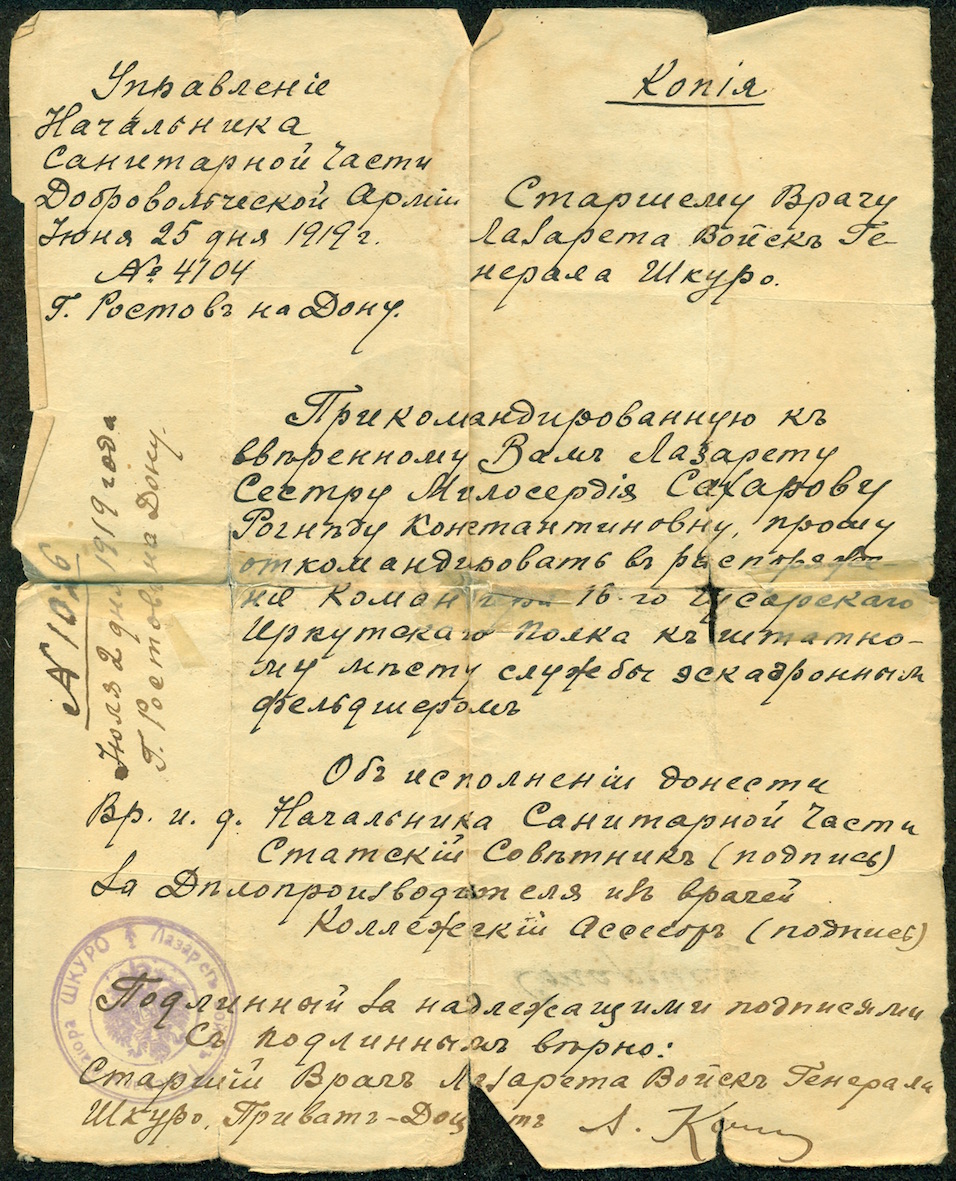 Управленіе
Начальника
Санитарной Части
Добровольческой Арміи
Іюня 25 дня 1919 г.
№ 4104
Г. Ростовъ на Дону.
Копія
Старшему Врачу
Лазарета Войскъ Ге-
нерала Шкуро.
Прикомандированную къ
ввѣренному Вамъ Лазарету
Сестру Милосердія Сахарову
Рогнѣду Константиновну, прошу
откомандировать въ распоряже-
ніе 16-го Гусарскаго
Иркутскаго Полка къ штатно-
му мѣсту службы эскадроннымъ
фельдшеромъ
Объ исполненіи донести
Вр. и. д. Начальника Санитарной Части
Статскій Совѣтникъ (подпись)
За Дѣлопроизводителя изъ врачей
Коллежскій Асессоръ (подпись)
Подлинный за надлежащими подписями
Съ подлиннымъ вѣрно:
Старшій Врачъ Лазарета Войскъ Генерала
Шкуро, Приватъ-Доц "тъ А.
№ 1026
Іюля 2 дня 1919 года
Г. Ростовъ на Дону.
ШКУРО Лазаретъ